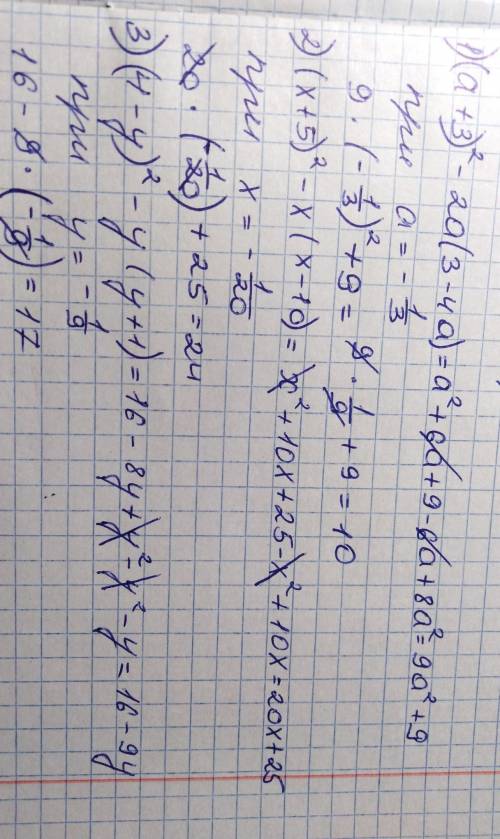 1) (a+3)² - 2a(3-4a) = a² + 6a + 9 - 6a + 8a² = 9a² + 9
при a = -1/3
9 · (-1/3)² + 9 = 9 · 1/9 + 9 = 10
2) (x+5)² - x(x-10) = x² + 10x + 25 - x² + 10x = 20x + 25
при x = -1/20
20 · (-1/20) + 25 = 24
3) (4-y)² - y(y+1) = 16 - 8y + y² - y² - y = 16 - 9y
при y = -1/9
16 - 9 · (-1/9) = 17